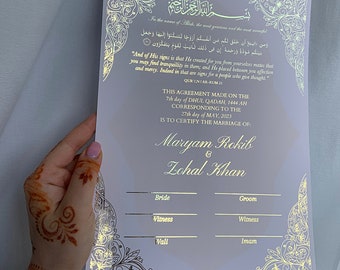 بسم الله الرحمن الرحيم
In the name of Allah, the most gracious and the most merciful
ومن آياته أن خلق لكم من أنفسكم أزواجا
"And of His signs is that He created for you from yourselves mates that
you may find tranquility in them; and He placed between you affection
and mercy. Indeed in that are signs for a people who give thought."
THIS AGREEMENT MADE ON THE
7th day of DHUL QADAH, 1444 AH
CORRESPONDING TO THE
27th day of MAY, 2023
IS TO CERTIFY THE MARRIAGE OF:
Maryam Rekib
&
Zohal Khan
Bride Groom
Witness Witness
Vali Imam